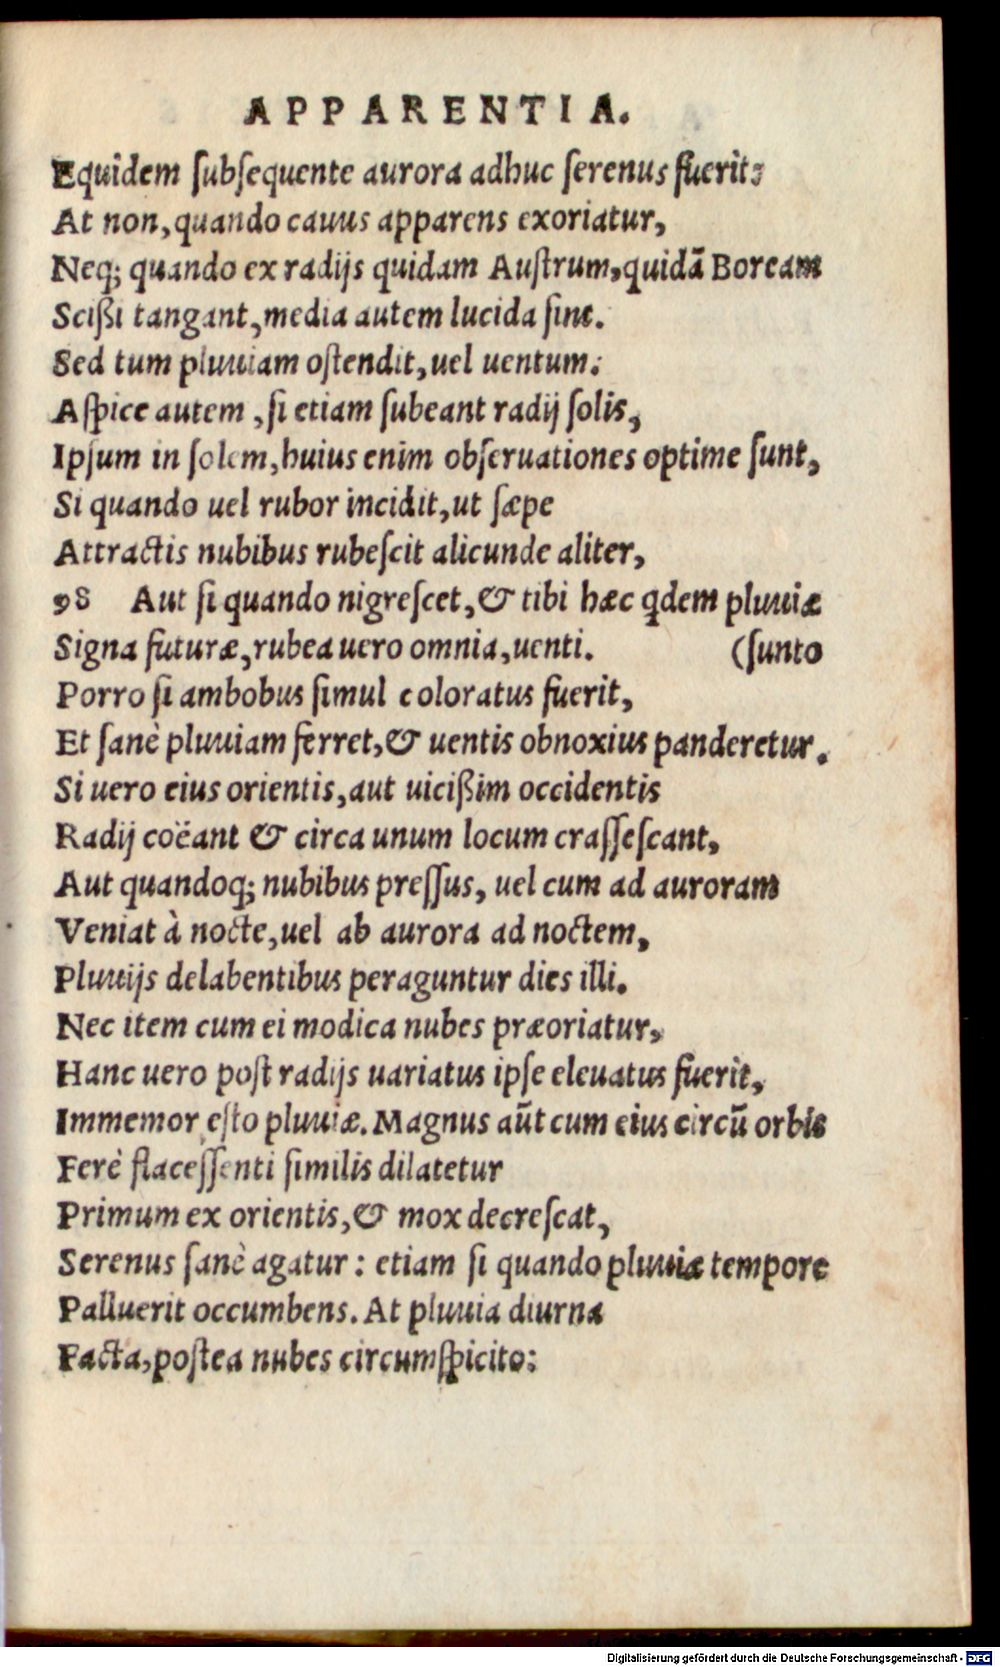 APPARENTIA.
Equidem ſubſequente aurora adhuc ſerenus fuerit:
At non, quando cauus apparens exoriatur,
Neq; quando ex radijs quidam Auſtrum, quidã Boream
Scißi tangant, media autem lucida ſint.
Sed tum pluuiam oſtendit, uel uentum:
Aſpice autem, ſi etiam ſubeant radij ſolis,
Ipſum in ſolem, huius enim obſeruationes optime ſunt,
Si quando uel rubor incidit, ut ſæpe
Attractis nubibus rubeſcit alicunde aliter,
98 Aut ſi quando nigreſcet, & tibi hæc qdem pluuiæ
Signa futuræ, rubea uero omnia, uenti. (ſunto
Porro ſi ambobus ſimul coloratus fuerit,
Et ſanè pluuiam ferret, & uentis obnoxius panderetur.
Si uero eius orientis, aut uicißim occidentis
Radij coëant & circa unum locum craſſeſcant,
Aut quandoq; nubibus preſſus, uel cum ad auroram
Veniat à nocte, uel ab aurora ad noctem,
Pluuijs delabentibus peraguntur dies illi.
Nec item cum ei modica nubes præoriatur,
Hanc uero poſt radijs uariatus ipſe eleuatus fuerit,
Immemor eſto pluuiæ. Magnus aũt cum eius circũ orbis
Ferè flaceſſenti ſimilis dilatetur
Primum ex orientis, & mox decreſcat,
Serenus ſanè agatur: etiam ſi quando pluuiæ tempore
Palluerit occumbens. At pluuia diurna
Facta, poſtea nubes circumſpicito:
Digitalisierung gefördert durch die Deutsche Forschungsgemeinschaft - DFG